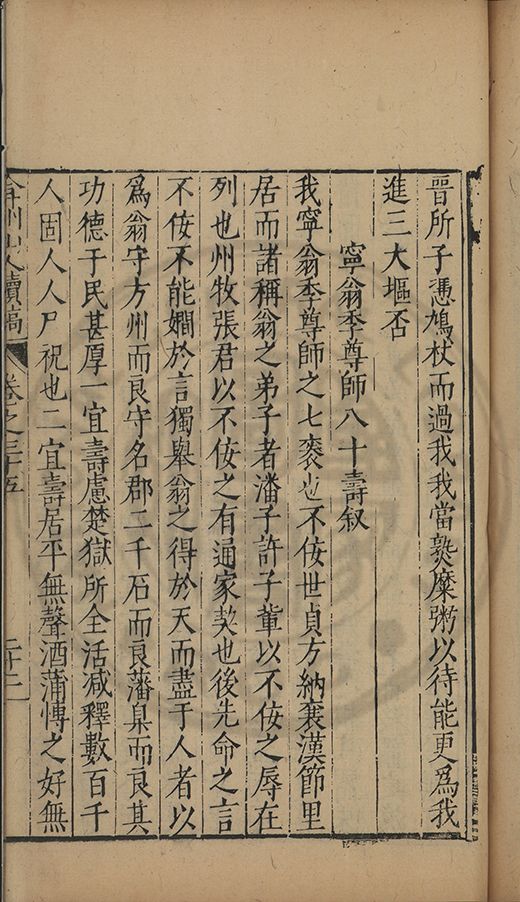 晉所子憑鳩杖而過我我當爇糜粥以待能更爲我
進三大堰否
寧翁季尊師八十壽叙
我寧翁季尊師之七袠也不佞世貞方納襄漢節里
居而諸稱翁之弟子者潘子許子軰以不佞之辱在
列也州牧張君以不佞之有通家契也後先命之言
不佞不能嫺於言獨舉翁之得於天而盡于人者以
爲翁守方州而良守名郡二千石而良藩臬而良其
功德于民甚厚一宜壽慮楚獄所全活减釋數百千
人固人人尸祝也二宜壽居平無聲酒蒲愽之好無
弇州山人續稿
卷之三十五
二十二